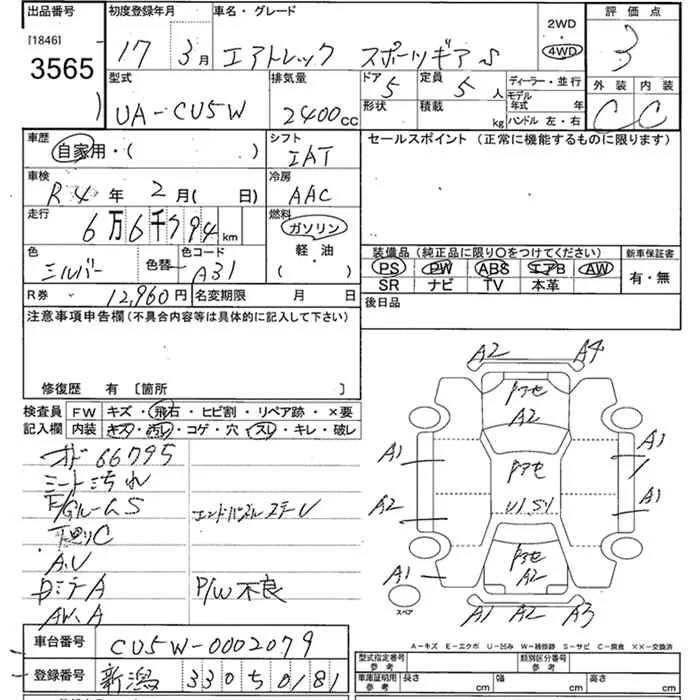 出品番号 初度登録年月 車名・グレード 2WD 評価点
[1846] 17 3月 エアトレック スポーツギア S 4WD 3
3565
型式 排気量 ドア 定員 ディーラー・並行 外装 内装
UA-CU5W 2400cc 5 5人 モデル年式 年 C C
形状 積載 kg ハンドル 左・右
車歴 シフト セールスポイント (正常に機能するものに限ります)
自家用・( ) IAT
車検 冷房
R4年 2月( 日) AAC
走行 燃料
6万6千794km ガソリン
軽・油
( )
色 色替 色コード 装備品 (純正品に限り○をつけてください) 新車保証書
シルバー A31 PS PW ABS エアB AW 有・無
SR ナビ TV 本革
R券 12,960円 名変期限 月 日 後日品
注意事項申告欄 (不具合内容等は具体的に記入して下さい)
修復歴 有 〔箇所 〕
検査員 FW キズ・飛石・ヒビ割・リペア跡・×要
記入欄 内装 キズ・汚レ・コゲ・穴・スレ・キレ・破レ
66795
シート汚れ
F/グルームS
下廻りC
A.U
AW.A
P/W不良
A2 A4
アセ
A2
A1 A1
アセ
A2 U1.S1 A1
アセ
A1 A2
スペア
A1 A2 A3
A-キズ E-エクボ U-凹み W-補修跡 S-サビ C-腐食 ××-交換済
車台番号 CU5W-0002079
登録番号 新潟 330 50181
型式指定番号 参考 類別区分番号 参考
車庫証明用 参考 長さ cm 幅 cm 高さ cm